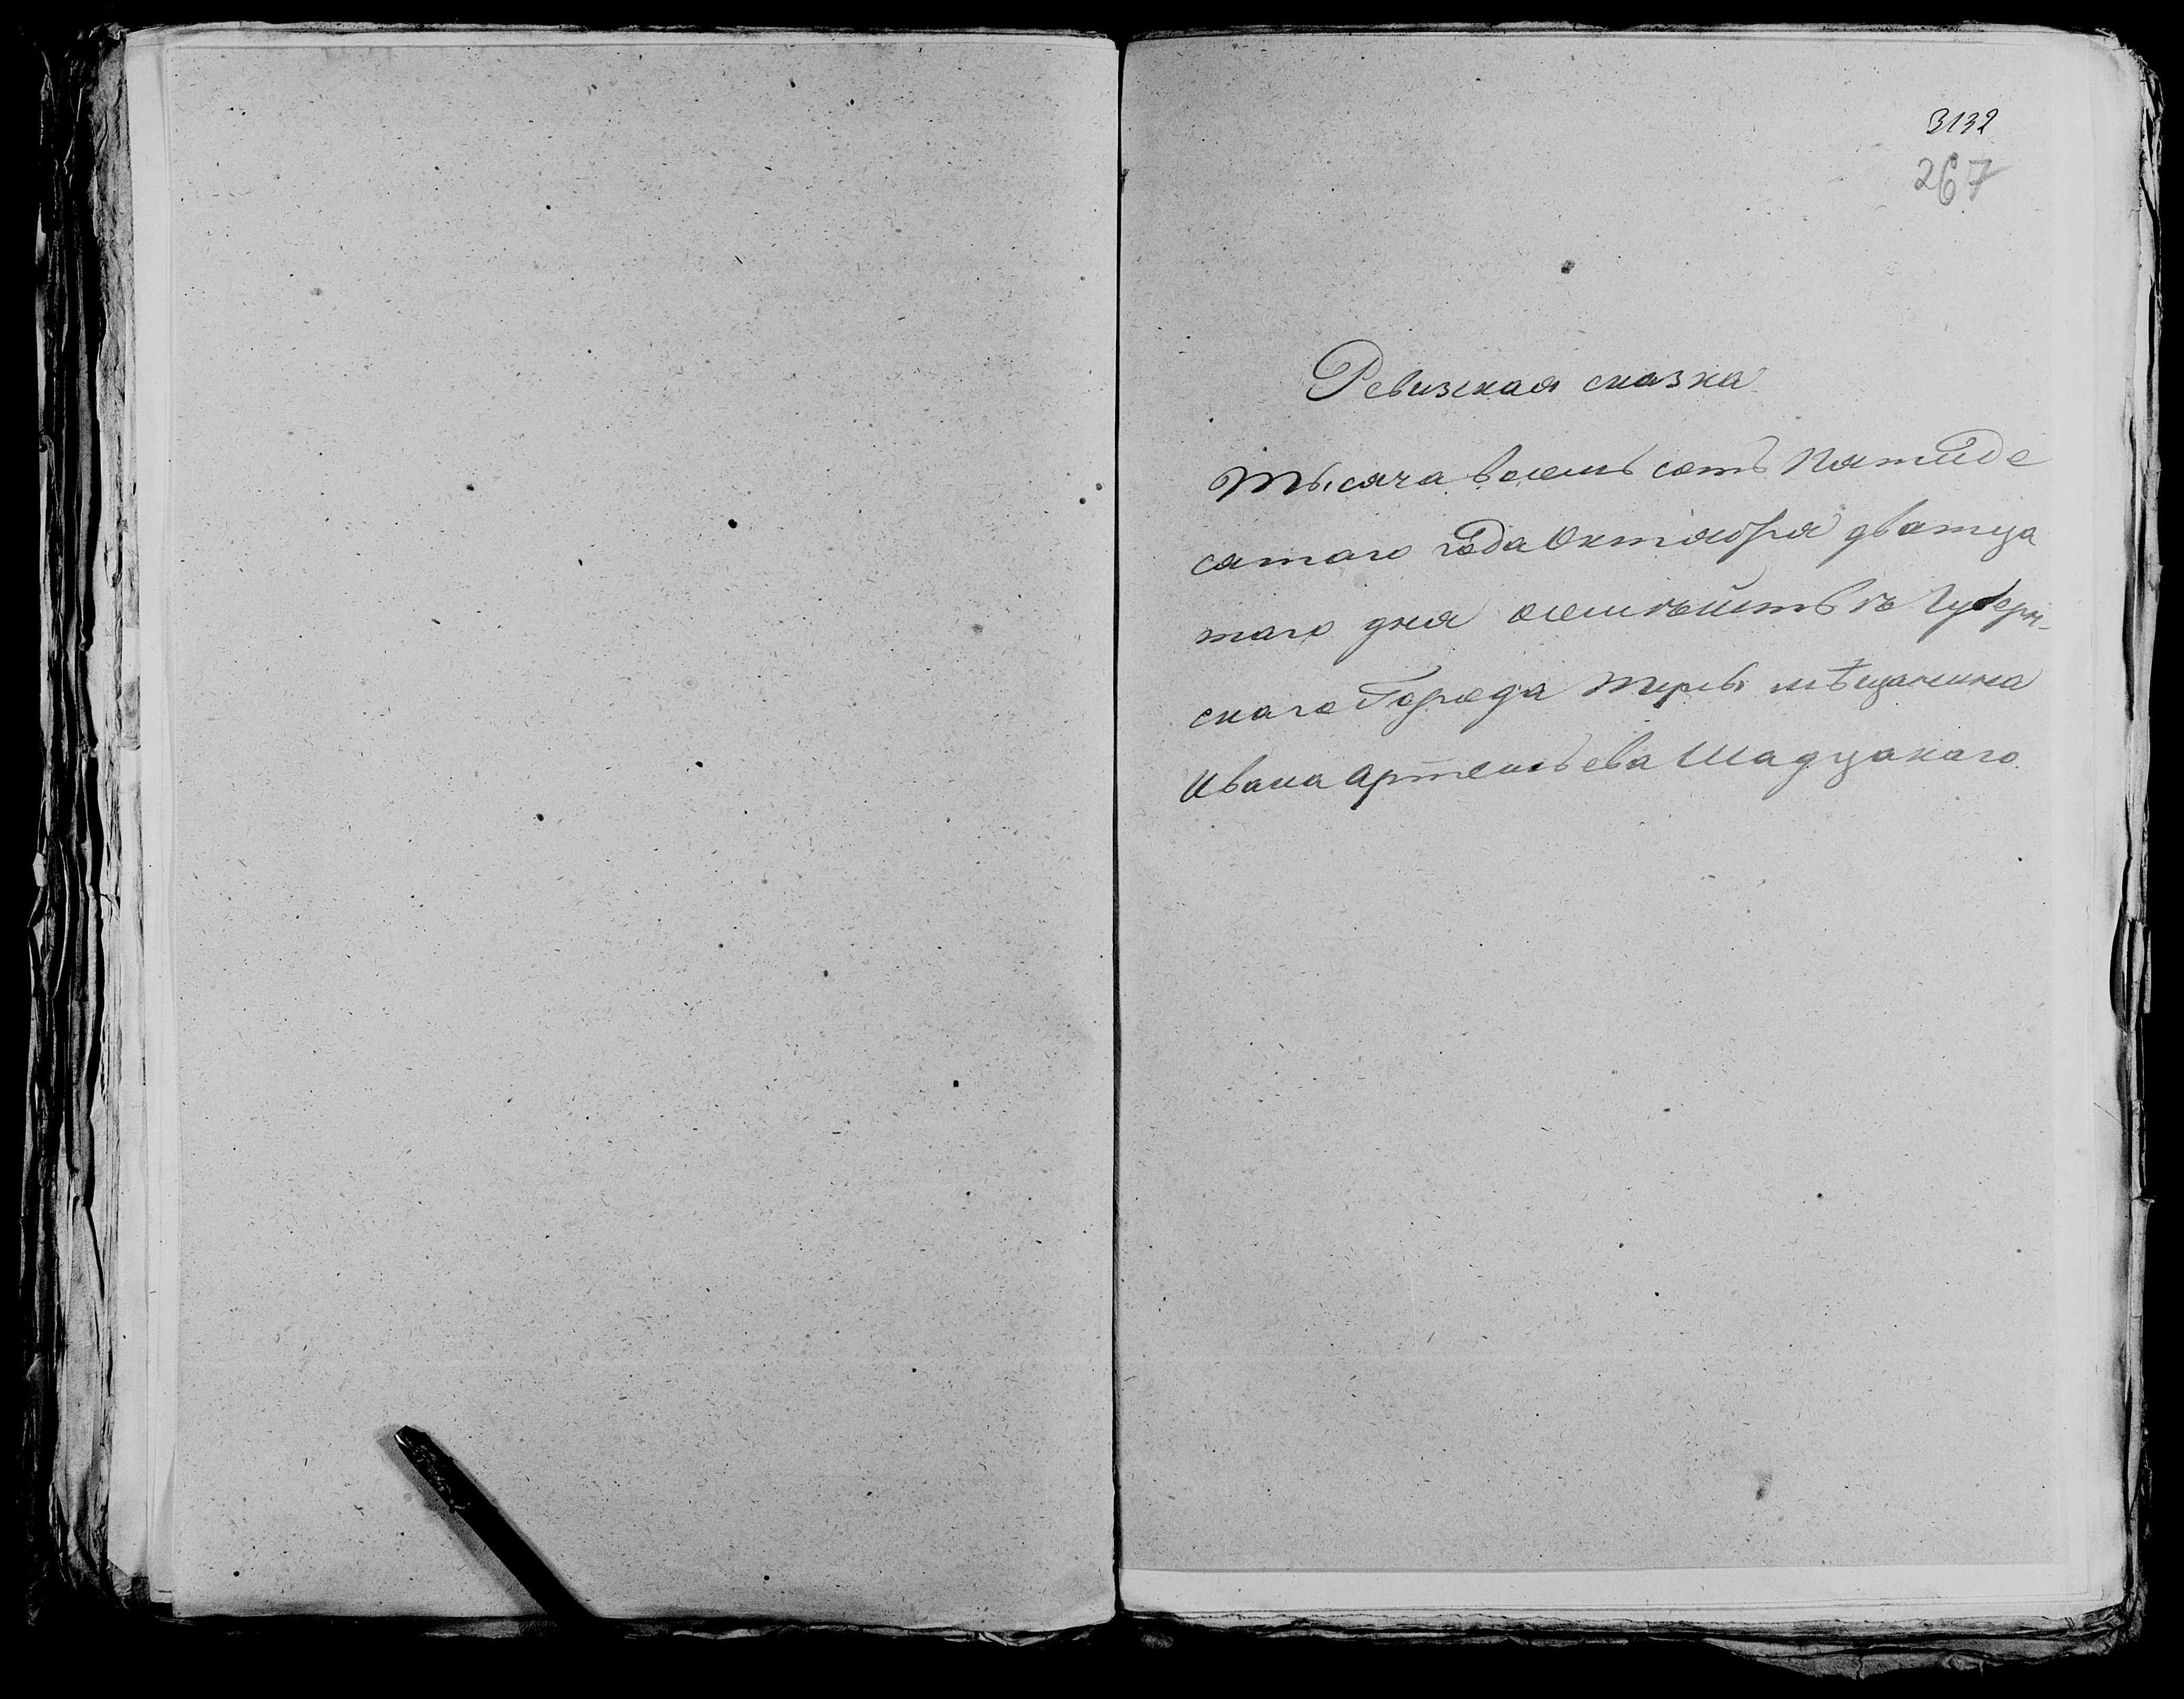 3132
267
Ревизская сказка
Тысяча восемь сотъ Пятиде
сятаго года Октября дватца
таго дня Губерн-
скаго Города Твери мѣщанина
Ивана Артемьева Шадцкаго